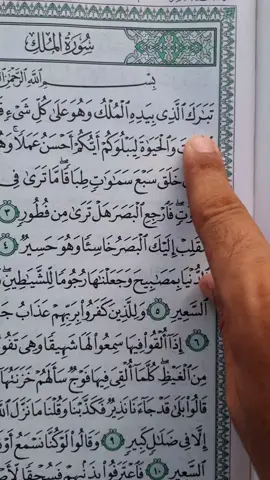 سُورَةُ المُلْكِ
بِسْمِ ٱللَّهِ ٱلرَّحْمَٰنِ
تَبَٰرَكَ ٱلَّذِى بِيَدِهِ ٱلْمُلْكُ وَهُوَ عَلَىٰ كُلِّ شَىْءٍ
وَٱلْحَيَوٰةَ لِيَبْلُوَكُمْ أَيُّكُمْ أَحْسَنُ عَمَلًا ۚ
خَلَقَ سَبْعَ سَمَٰوَٰتٍ طِبَاقًا ۖ مَّا تَرَىٰ فِى
فَٱرْجِعِ ٱلْبَصَرَ هَلْ تَرَىٰ مِن فُطُورٍ ٣
إِلَيْكَ ٱلْبَصَرُ خَاسِئًا وَهُوَ حَسِيرٌ ٤
بِمَصَٰبِيحَ وَجَعَلْنَٰهَا رُجُومًا لِّلشَّيَٰطِينِ ۖ
ٱلسَّعِيرِ ٥ وَلِلَّذِينَ كَفَرُوا۟ بِرَبِّهِمْ عَذَابُ
٦ إِذَآ أُلْقُوا۟ فِيهَا سَمِعُوا۟ لَهَا شَهِيقًا وَهِىَ
مِنَ ٱلْغَيْظِ ۖ كُلَّمَآ أُلْقِىَ فِيهَا فَوْجٌ سَأَلَهُمْ خَزَنَتُهَآ
قَالُوا۟ بَلَىٰ قَدْ جَآءَنَا نَذِيرٌ فَكَذَّبْنَا وَقُلْنَا مَا نَزَّلَ ٱللَّهُ
إِلَّا فِى ضَلَٰلٍ كَبِيرٍ ٩ وَقَالُوا۟ لَوْ كُنَّا نَسْمَعُ أَوْ
ٱلسَّعِيرِ ١٠ فَٱعْتَرَفُوا۟ بِذَنۢبِهِمْ فَسُحْقًا